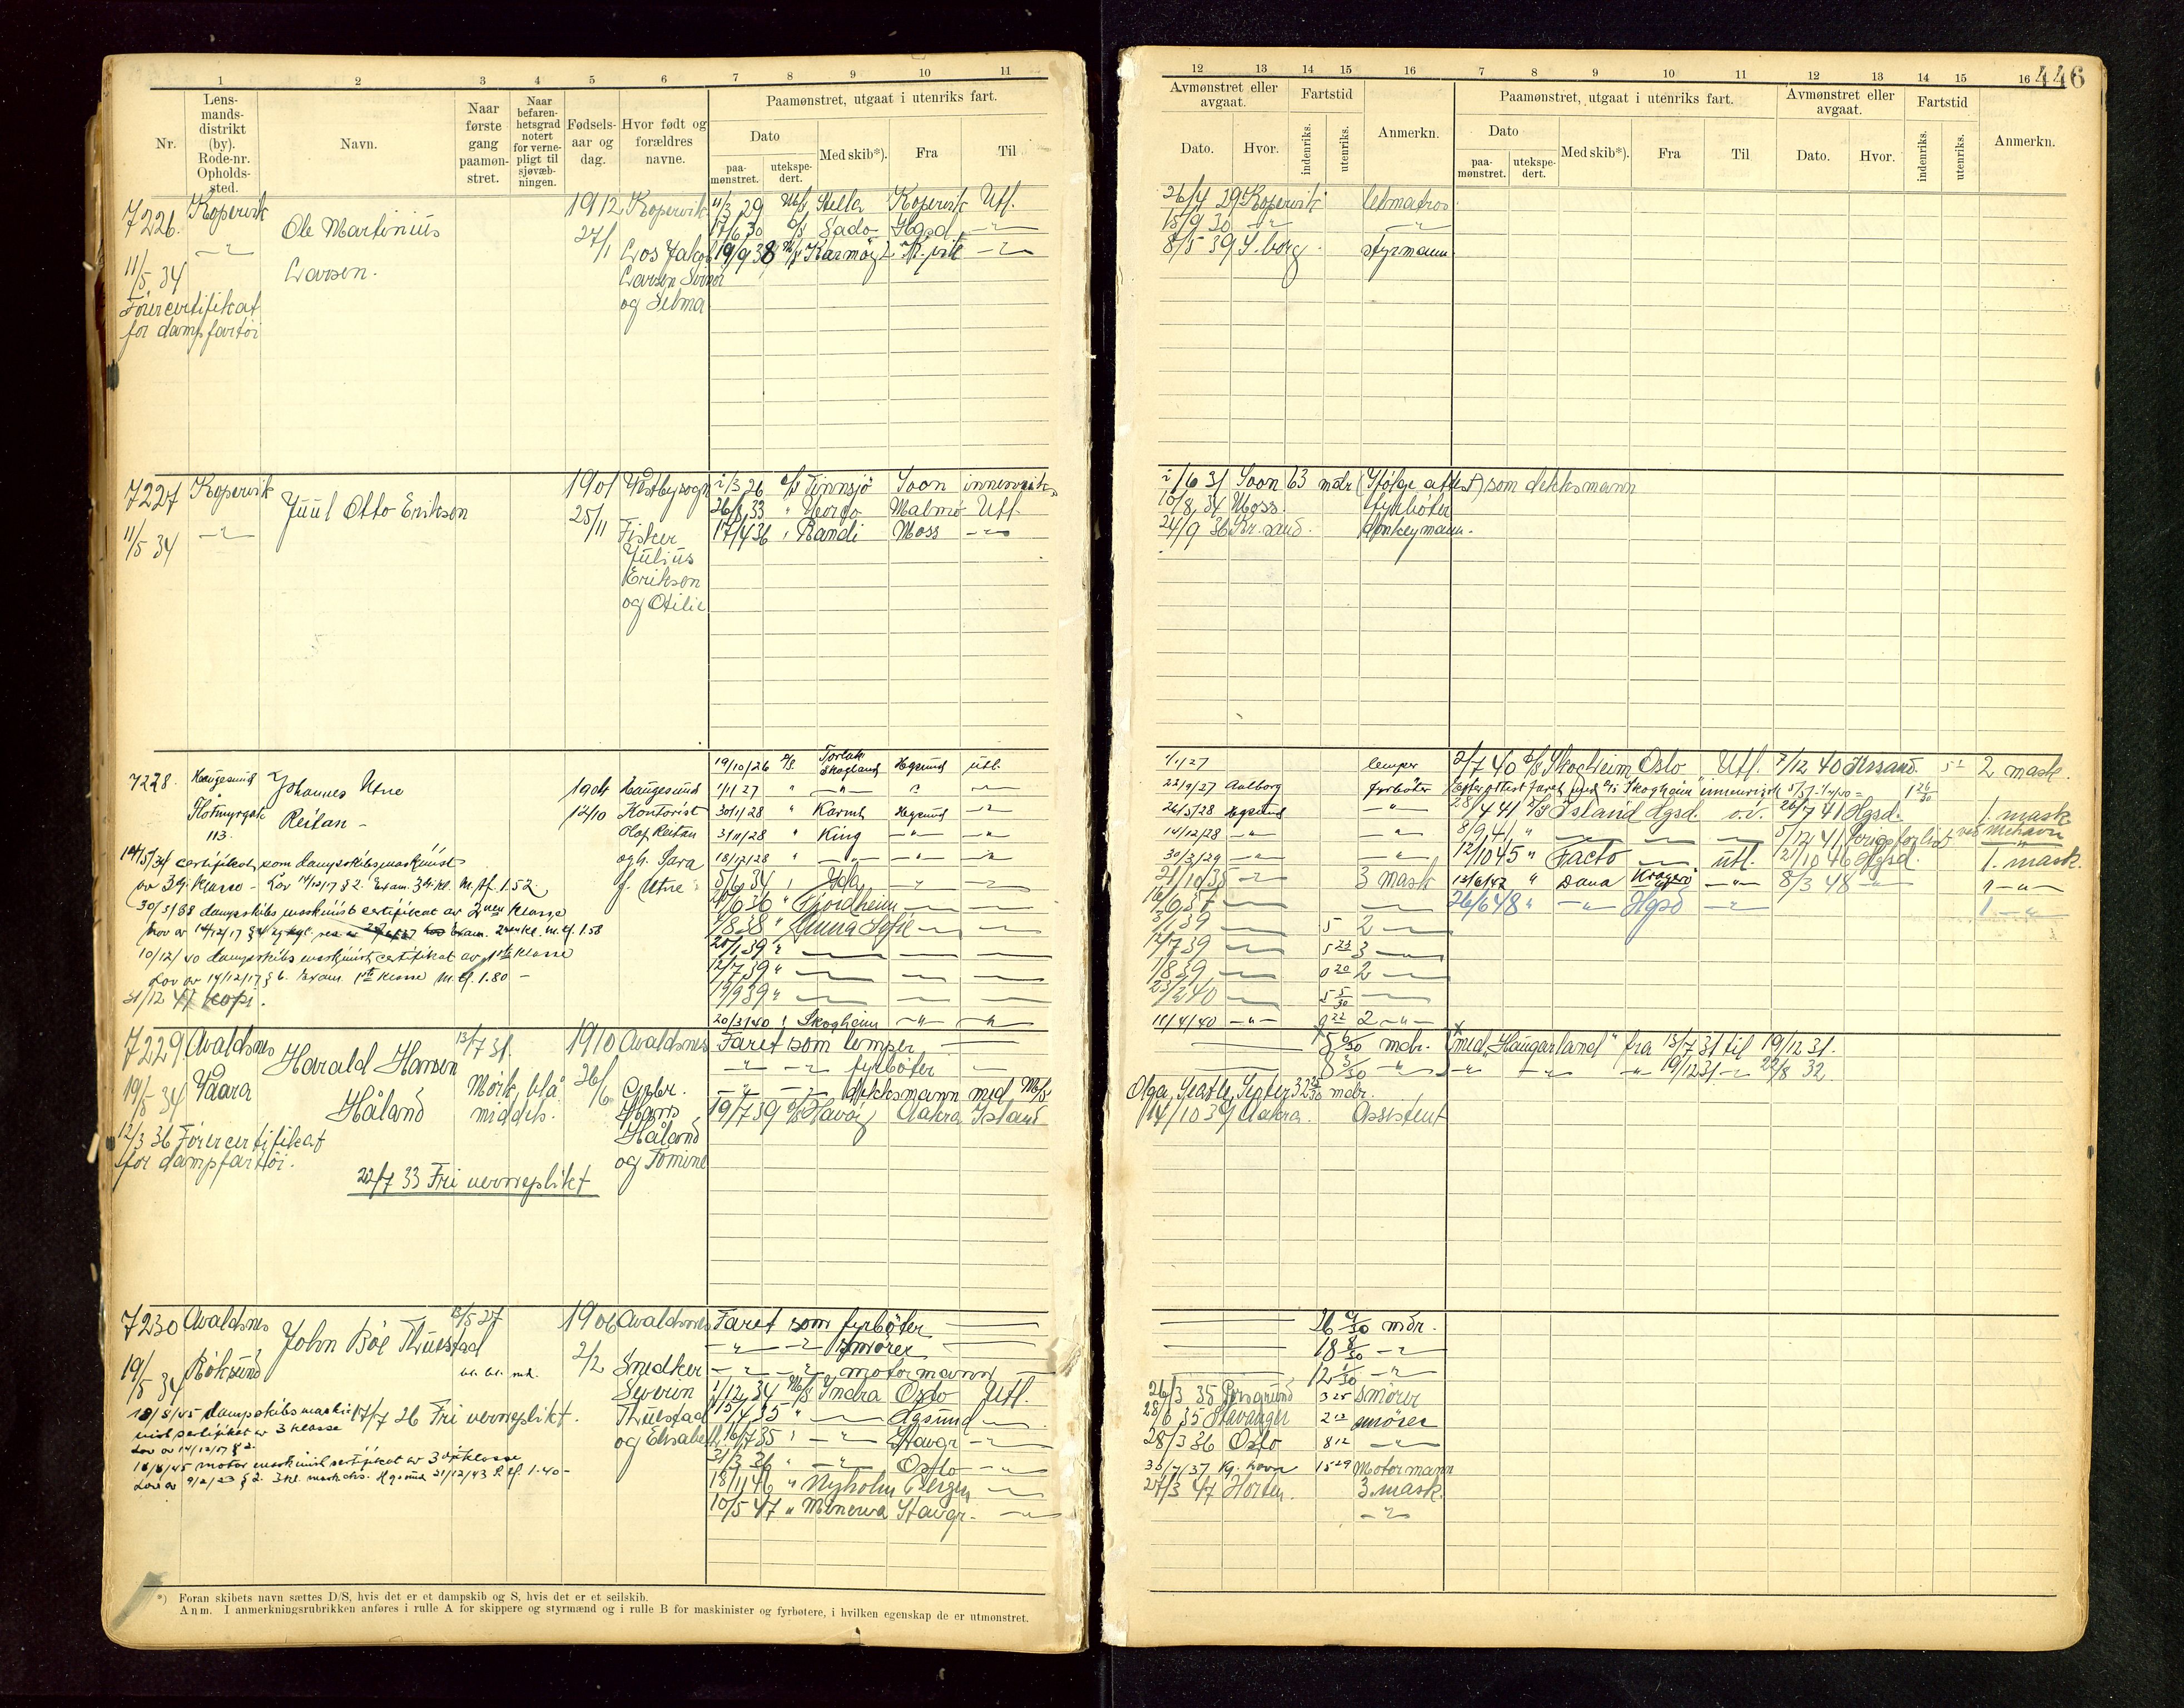 1 2 3 4 5 6 7 8 9 10 11
Nr.
Lensmandsdistrikt (by). Rode-nr. Opholdssted.
Navn.
Naar første gang paamønstret.
Naar befarenhetsgrad notert for vernepligt til sjøvæbningen.
Fødselsaar og dag.
Hvor født og forældres navne.
Paamønstret, utgaat i utenriks fart.
Dato
paamønstret. utekspedert.
Med skib*). Fra Til
12 13 14 15 16 7 8 9 10 11 12 13 14 15 16
446
Avmønstret eller avgaat. Fartstid
Dato. Hvor. indenriks. utenriks. Anmerkn.
Paamønstret, utgaat i utenriks fart.
Dato
paamønstret. utekspedert. Med skib*). Fra Til
Avmønstret eller avgaat. Fartstid
Dato. Hvor. indenriks. utenriks. Anmerkn.
7226. Kopervik
Ole Martinius
Larsen.
11/5 34
Førercertifikat
for dampfartøi
1912 27/1
Kopervik
Los Jakob
Larsen
og Selma
11/3 29 M/k Stella Kopervik Utl.
17/6 30 Sado Hgsd. -"-
19/9 38 Karmøy K.vik -"-
26/4 29 Kopervik letmatros
15/9 30 -"- -"-
8/5 39 S.borg styrmann
7227 Kopervik
11/5 34 -"-
Juul Otto Eriksen
1901 25/11
Vestby sogn
Fisker
Julius
Eriksen
og Otilie
2/3 26 D/S Tinnsjø Soon innenriks
26/8 33 " Malmø Utl.
17/4 36 " Randi Moss -"-
2/6 31 Soon 63 mdr (Ifølge attest) som dekksmann
10/8 34 Moss fyrbøter
24/9 36 Kr.sund. donkeymann.
7228. Haugesund
Flotmyrgate
113.
Johannes Utne
Reitan -
1904 12/10
Haugesund
Kontorist
Olof Reitan
og h. Sara
f. Utne
14/5/34 certifikat som dampskibsmaskinist
av 3dje klasse - Lov 14/12/17 § 2. Exam. 3dje kl. M.sf. 1.52.
30/3/38 dampskibs maskinist certifikat av 2nen klasse
10/12/40 dampskibs maskinist certifikat av 1ste klasse
Lov av 14/12/17 § 6. Exam. 1ste klasse M.sf. 1.80 -
19/10/26 D/S. Torlak Skogland Hgsund utl.
1/1 27 " -"- " -"-
30/1/28 " Karmt Hgsund -"-
3/11/28 " King -"- -"-
18/12/28 " -"- -"- -"-
5/6 34 " Yda -"- -"-
Fjordheim
1/8 38 " Anna Sofie
20/1 39 "
12/7 39 "
19/9 39 "
20/3/40 " Skogheim -"- -"-
1/1 27 lemper
22/9/27 Aalborg fyrbøter
26/5/28 Hgsund -"-
14/12/28 -"- -"-
30/3/29 -"- -"-
21/10 35 -"- 3 mask
5 2
12/7 39 5 23 3
1/8 39 0 20 2
23/2 40
11/4/40 -"- 9 22 2 -"-
2/7 40 D/S Skogheim Oslo Utl. 7/12 40 Krsand. 2 mask.
28/4 41 D/S Island Hgsd. 26/7 41 Hgsd. 1. mask
8/9 41 " 5/12 41 krigsforlist ved Mehavn
12/10 45 " Facto utl. 2/10 46 Hgsd. 1. mask.
13/6/47 " Dana Kragerø -"- 8/3 48 -"- 1 -"-
26/6 48 " -"- Hgsd -"- 1 -"-
7229 Avaldsnes
19/5 34 Vaara
Harald Hansen
Håland
13/7 31.
Mørk, blå
middels.
12/3 36 Førercertifikat
for dampfartøi.
22/7 33 Fri verneplikt
1910 26/6
Avaldsnes
Gbr.
Hans
Håland
og Tomine
Faret som lemper
-"- -"- fyrbøter
-"- -"- dekksmann med M/S
19/7 39 D/S Havöy Aakra Island
5 6/30 mdr. (med "Haugarland" fra 13/7 31 til 19/12 31.
8 3/30 -"- -"- -"- -"- 19/12 31 -"- 22/8 32.
Olga, Seattle, Septer 32 mdr.
14/10 39 Aakra. Assistent
7230 Avaldsnes
19/5 34 Röksund
John Böe Thuestad
13/5 27
1906 2/2
Avaldsnes
Snedker
Severin
Thuestad
og Elisabeth
17/7 26 Fri verneplikt.
18/8/45 dampskibsmaskinist
sertifikat av 3 klasse
Lov av 14/12/17 § 2.
18/8/45 motor maskinist sertifikat av 3dje klasse
Faret som fyrbøter
-"- -"- smører
-"- -"- motormann
1/12 34 M/S Yndra Oslo Utl.
15/4 35 " Hgsund -"-
16/7 35 " -"- Stavgr -"-
31/3 36 " -"- Oslo -"-
18/11 46 " Nyholm Bergen
10/5 47 " Menerva Stavgr. -"-
26 9/30 mdr.
18 8/30 -"-
12 1/30 -"-
26/3 35 Porsgrund 3 25 Smører
28/6 35 Stavanger 2 13 smører
28/3 36 Oslo 8 12 -"-
Kg. havn 15 29 Motormann
27/3 47 Horten. 3. mask.
-"-
*) Foran skibets navn sættes D/S, hvis det er et dampskib og S, hvis det er et seilskib.
Anm. I anmerkningsrubrikken anføres i rulle A for skippere og styrmænd og i rulle B for maskinister og fyrbøtere, i hvilken egenskap de er utmønstret.